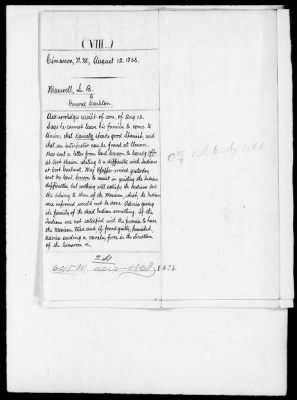 (VIII..)
Cimarron, N.M., August 12, 1866.
Maxwell, L. B.
to
General Carleton.
Acknowledges receipt of com. of Aug 12.
Says he cannot leave his farm to come to
Union; that Kaniatz speaks good Spanish, and
that an interpreter can be found at Union.
Has sent a letter from Gen'l Carson to Comdg Off.
at Fort Union relating to a difficulty with Indians
at Fort Garland. Maj. Pfeiffer arrived yesterday
sent by Gen'l Carson to assist in quieting the Indian
difficulty, but nothing will satisfy the Indians but
the giving to them of the Mexican, which, the Indians
were informed would not be done. Advises giving
the family of the dead Indian something. If the
Indians are not satisfied with this promise to have
the Mexican tried and, if found guilty, punished.
Advises sending a cavalry force in the direction
of the Cimarron &c.